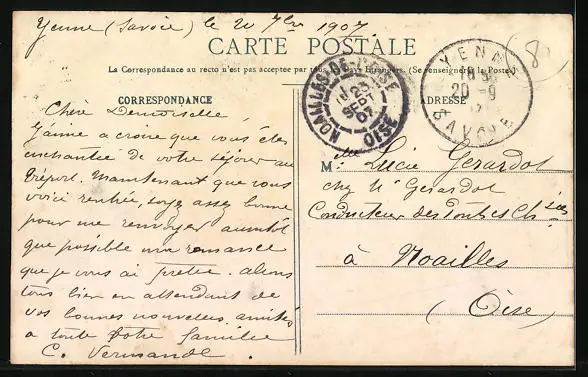 Yenne (Savoie) le 20 7bre 1907
CARTE POSTALE
La Correspondance au recto n'est pas acceptee par tous les Pays Etrangers. (Se renseigner à la Poste)
CORRESPONDANCE
ADRESSE
NOAILLES-DE-L'OISE
23
SEPT
07
OISE
YENNE
20 -9
SAVOIE
8
Chère Demoiselle
J'aime a croire que vous êtes
enchantée de votre séjour au
Tréport. Maintenant que vous
voici rentrée, soyez assez bonne
pour me renvoyer aussitôt
que possible ma romance
que je vous ai pretée. allons
tous bien en attendant de
vos bonnes nouvelles, amitiés
a toute votre famille
C. Vermande
Mlle Lucie Gerardot
chez Mr Gerardot
Conducteur des Ponts et Ch
à Noailles
(Oise)